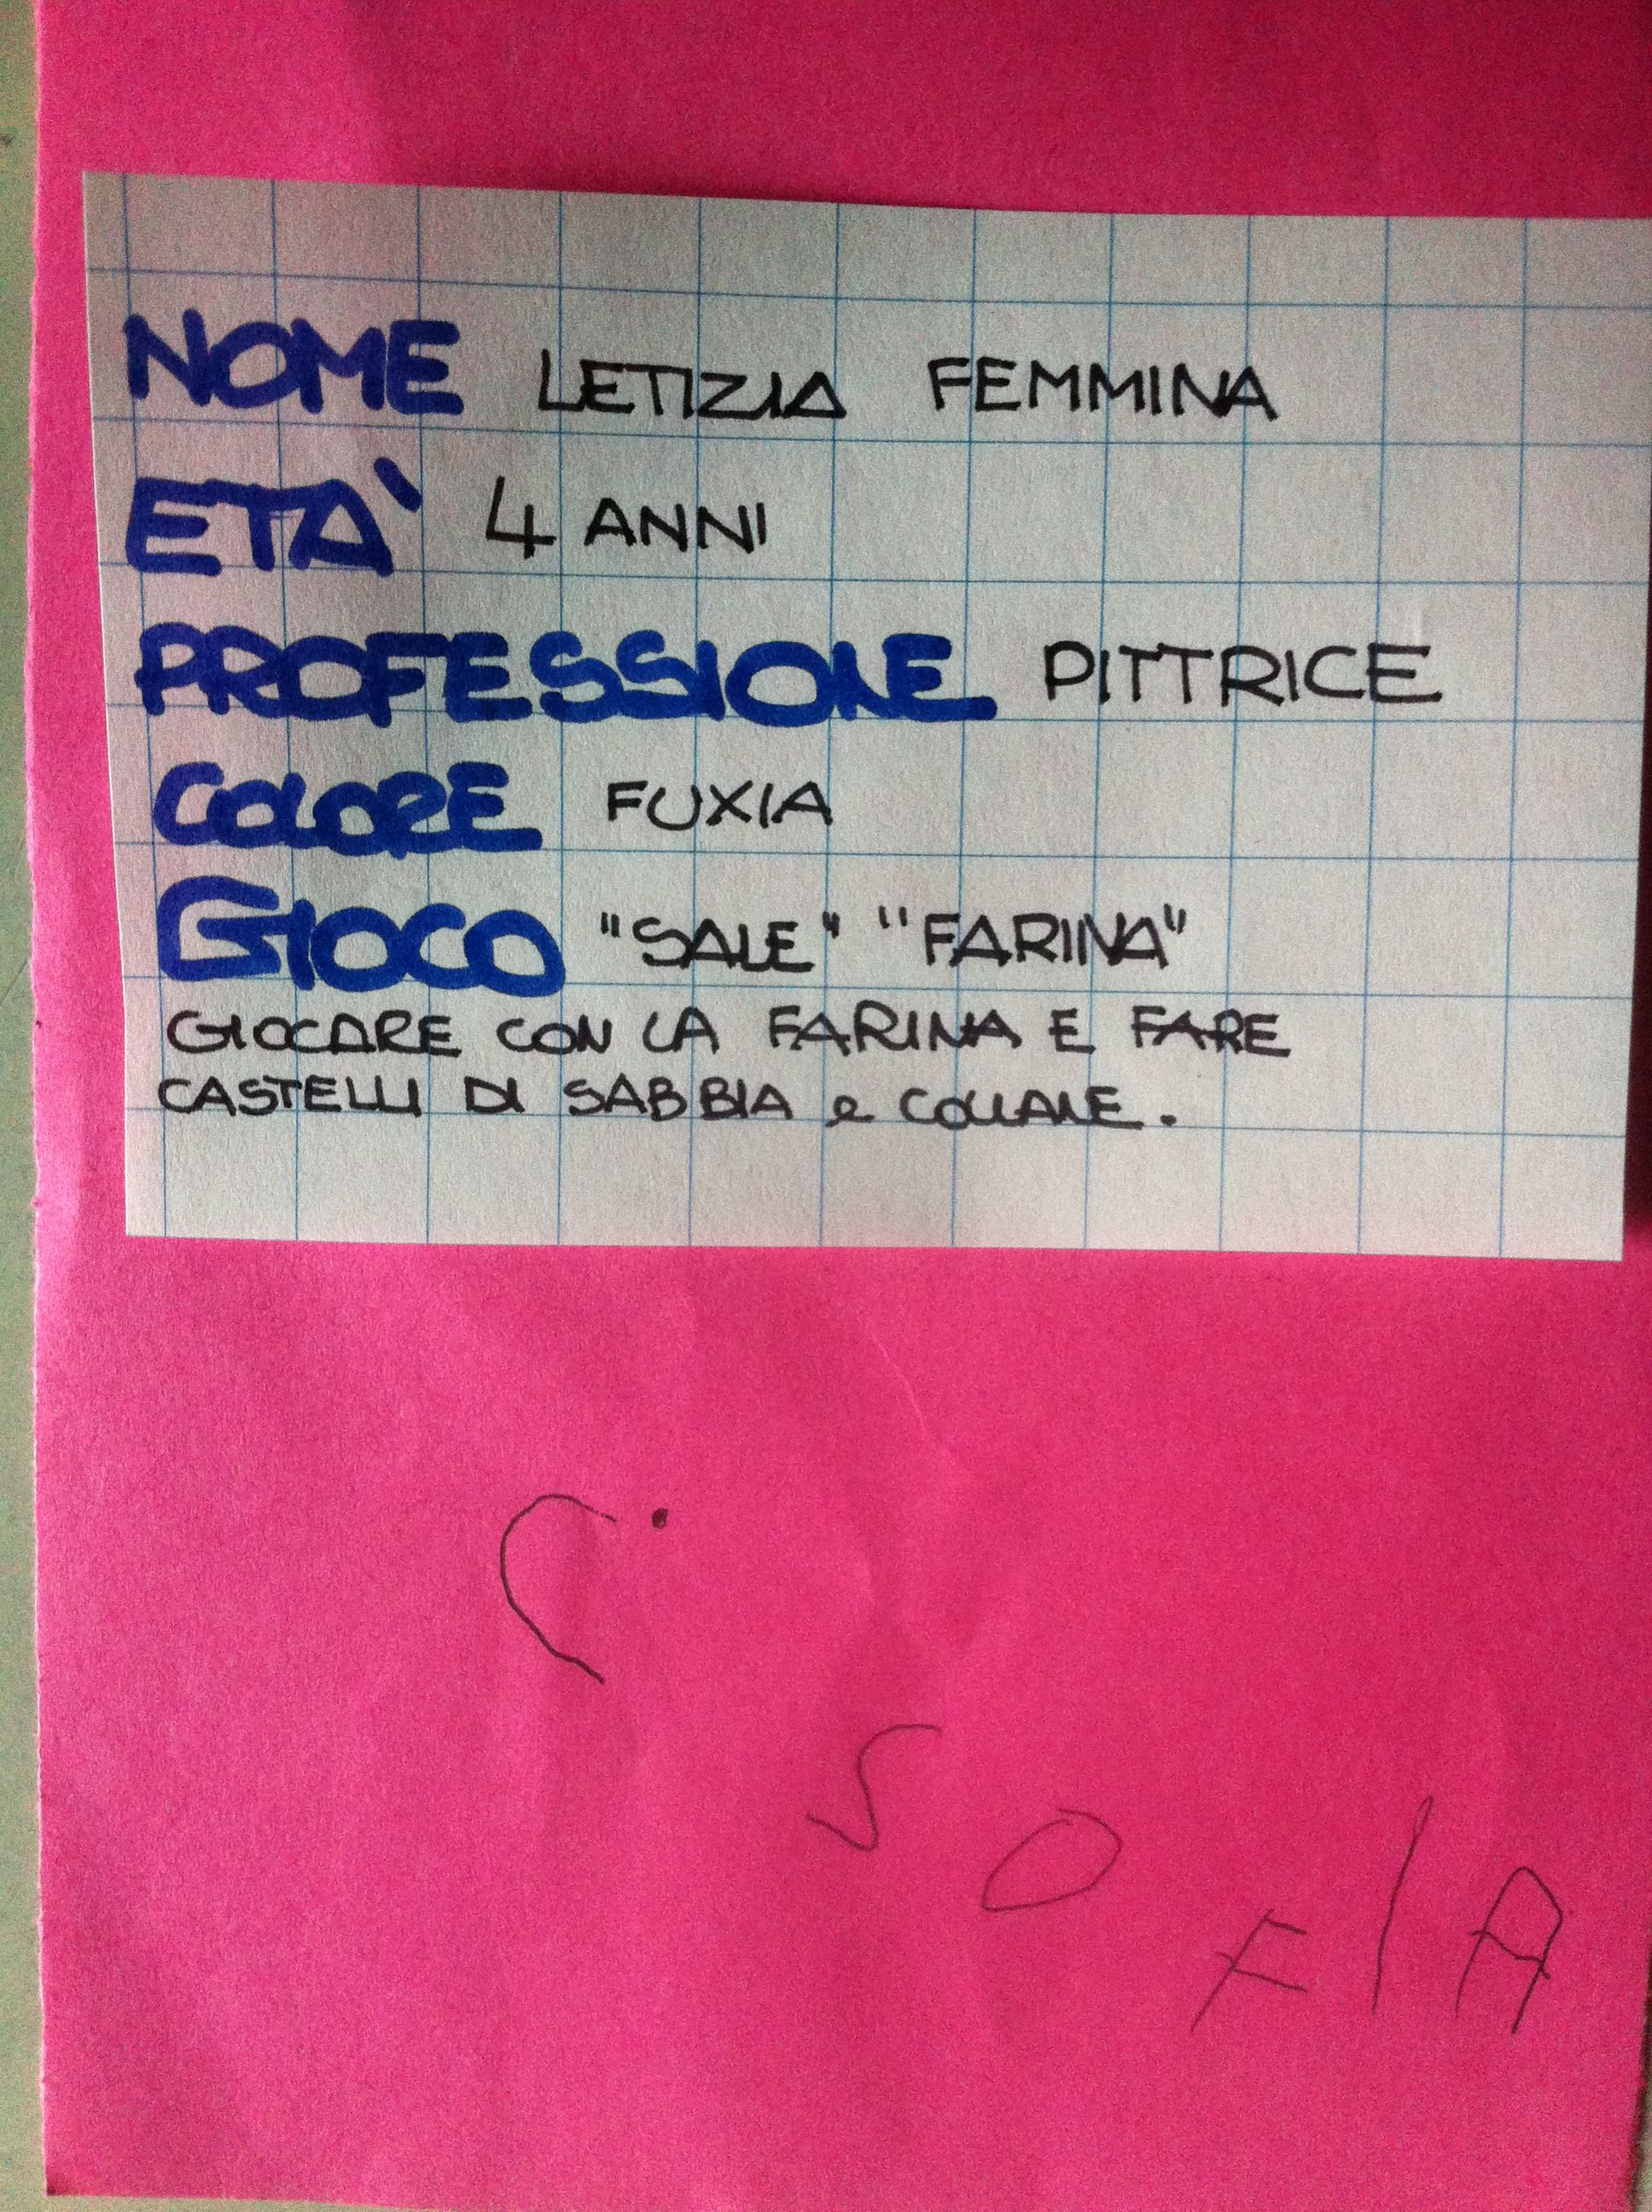 NOME LETIZIA FEMMINA
ETÀ 4 ANNI
PROFESSIONE PITTRICE
COLORE FUXIA
GIOCO "SALE" "FARINA"
GIOCARE CON LA FARINA E FARE
CASTELLI DI SABBIA e COLLANE.
C.
SOFIA